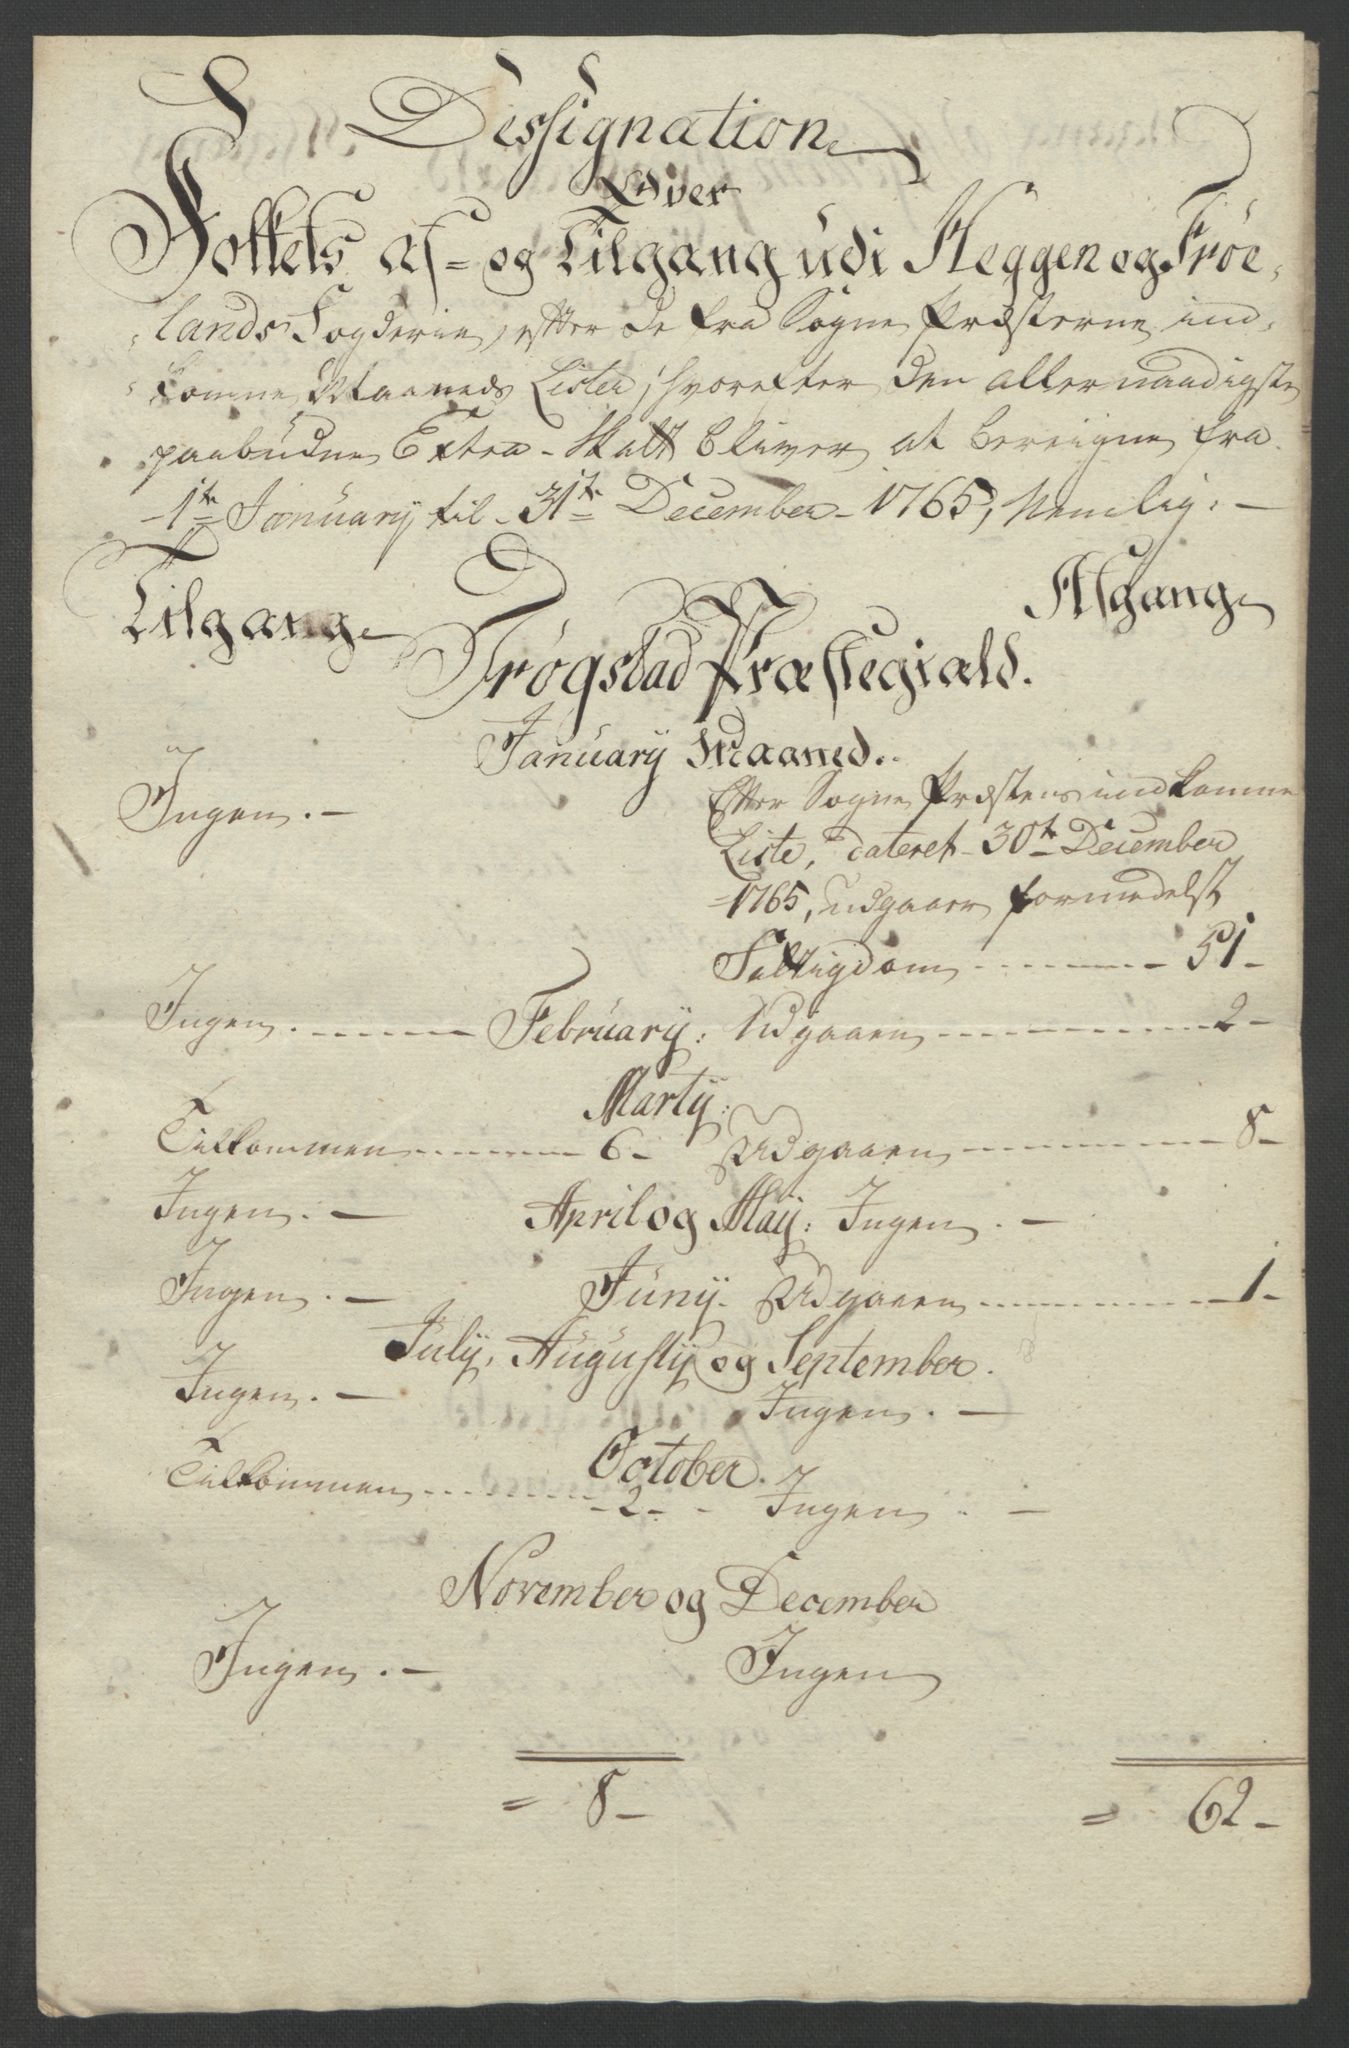 Dessignation
Over
Folkets af- og Tilgang udi Heggen og Frøe-
lands Fogderie, efter de fra Sogne Præsterne ind-
komne Maaneds Lister, hvorefter den allernaadigste
paabudne Extra-Skatt bliver at bereigne fra
1te January til 31te December 1765, Nemlig:
Tilgang Afgang
Trøgstad Præstegiæld.
January Maaned.
Ingen. Efter Sogne Præstens indkomne
Liste, dateret 30te December
1765, udgaaer formedelst
Fattigdom 51
Ingen. February: Udgaaen 2
Marty:
Tilkommen 6 Udgaaen 8
Ingen. April og May: Ingen.
Ingen. Juny. Udgaaen 1
July, Augusty og September.
Ingen. Ingen.
October.
Tilkommen 2 Ingen
November og December
Ingen. Ingen
= 8 = 62